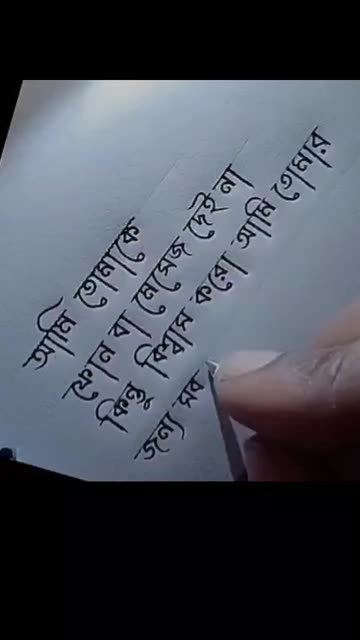 আমি তোমাকে
ফোন বা মেসেজ দেই না
কিন্তু বিশ্বাস করো আমি তোমার
জন্য সব